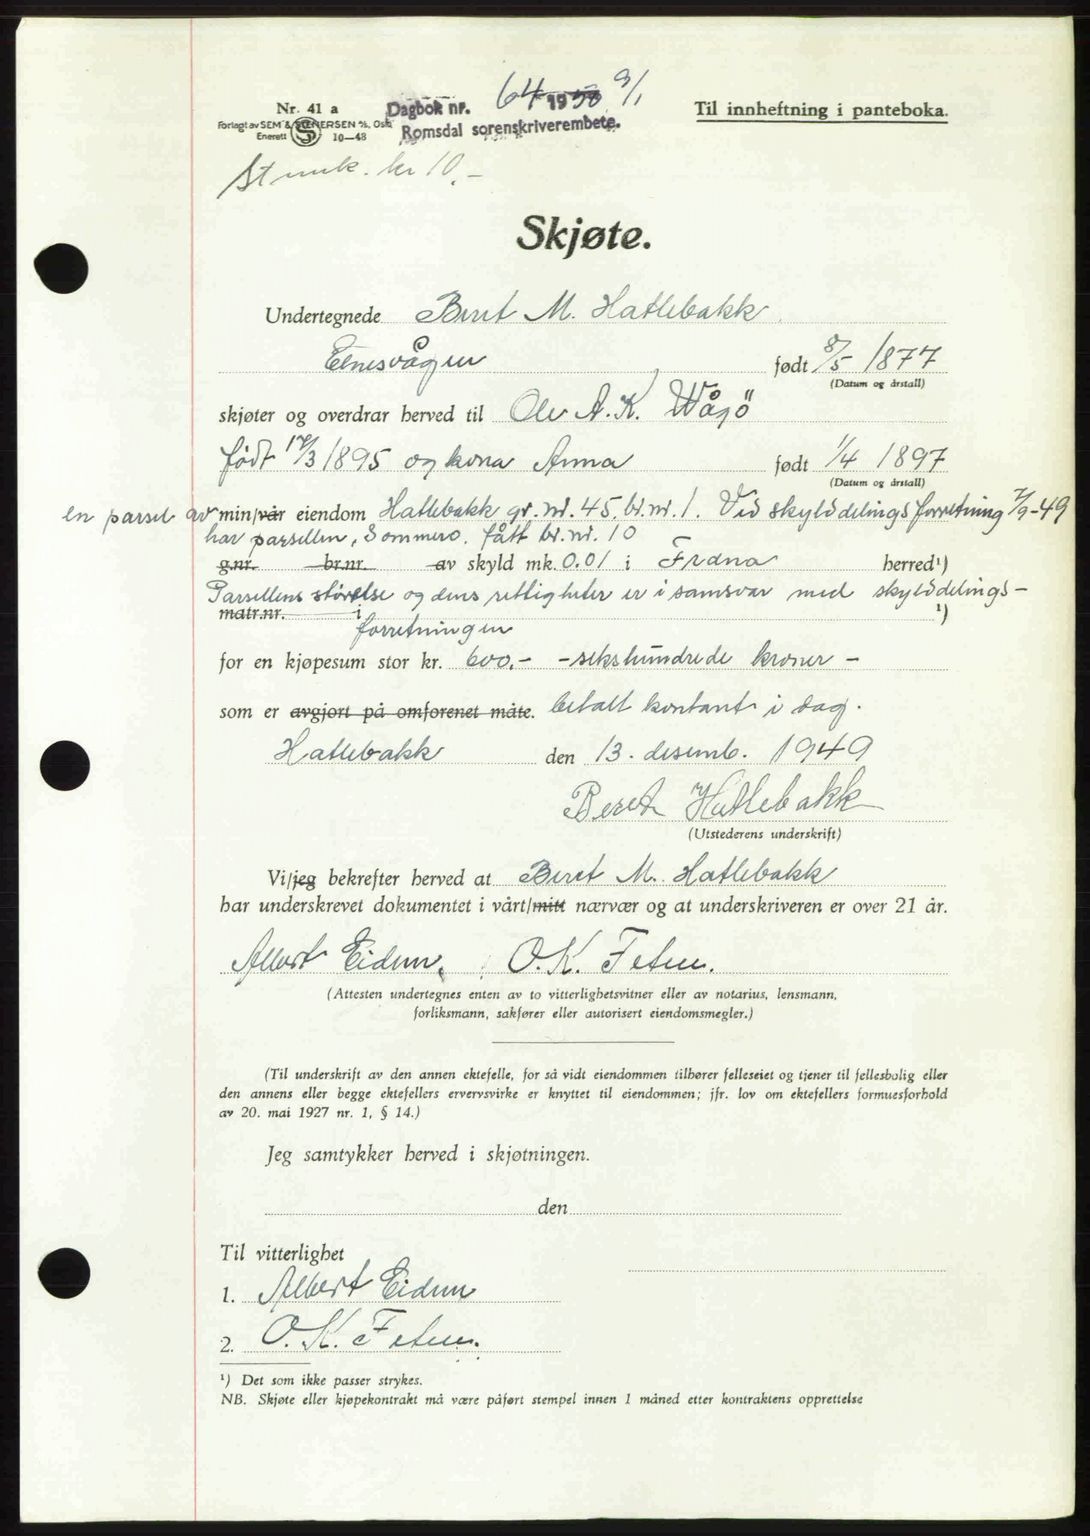 Nr. 41 a
Forlagt av SEM & STENERSEN A/S, Oslo
Enerett 10—48
Dagbok nr. 64 1950 9/1
Romsdal sorenskriverembete.
Til innheftning i panteboka.
St.merk. kr 10.-
Skjøte.
Undertegnede Beret M. Hatlebakk
Elnesvågen født 8/5 1877
(Datum og årstall)
skjøter og overdrar herved til Ole A. K. Wågø
født 17/3 1895 og kona Anna født 1/4 1897
(Datum og årstall)
en parsel av min/vår eiendom Hatlebakk gr. nr. 45, br. nr. 1. Ved skylddelingsforretning 7/9-49
har parsellen, Sommero, fått br. nr. 10
g.nr. br.nr. av skyld mk. 0.01 i Fræna herred¹)
Parsellens størelse og dens rettigheter er i samsvar med skylddelings-
matr.nr. i ¹)
forretningen
for en kjøpesum stor kr. 600.- - sekshundrede kroner -
som er avgjort på omforenet måte. betalt kontant i dag.
Hatlebakk den 13. desemb. 1949
Beret Hatlebakk
(Utstederens underskrift)
Vi/jeg bekrefter herved at Beret M. Hatlebakk
har underskrevet dokumentet i vårt/mitt nærvær og at underskriveren er over 21 år.
Albert Eidem, O. K. Feten.
(Attesten undertegnes enten av to vitterlighetsvitner eller av notarius, lensmann,
forliksmann, sakfører eller autorisert eiendomsmegler.)
(Til underskrift av den annen ektefelle, for så vidt eiendommen tilhører felleseiet og tjener til fellesbolig eller
den annens eller begge ektefellers ervervsvirke er knyttet til eiendommen; jfr. lov om ektefellers formuesforhold
av 20. mai 1927 nr. 1, § 14.)
Jeg samtykker herved i skjøtningen.
den
Til vitterlighet
1. Albert Eidem
2. O. K. Feten.
¹) Det som ikke passer strykes.
NB. Skjøte eller kjøpekontrakt må være påført stempel innen 1 måned etter kontraktens opprettelse